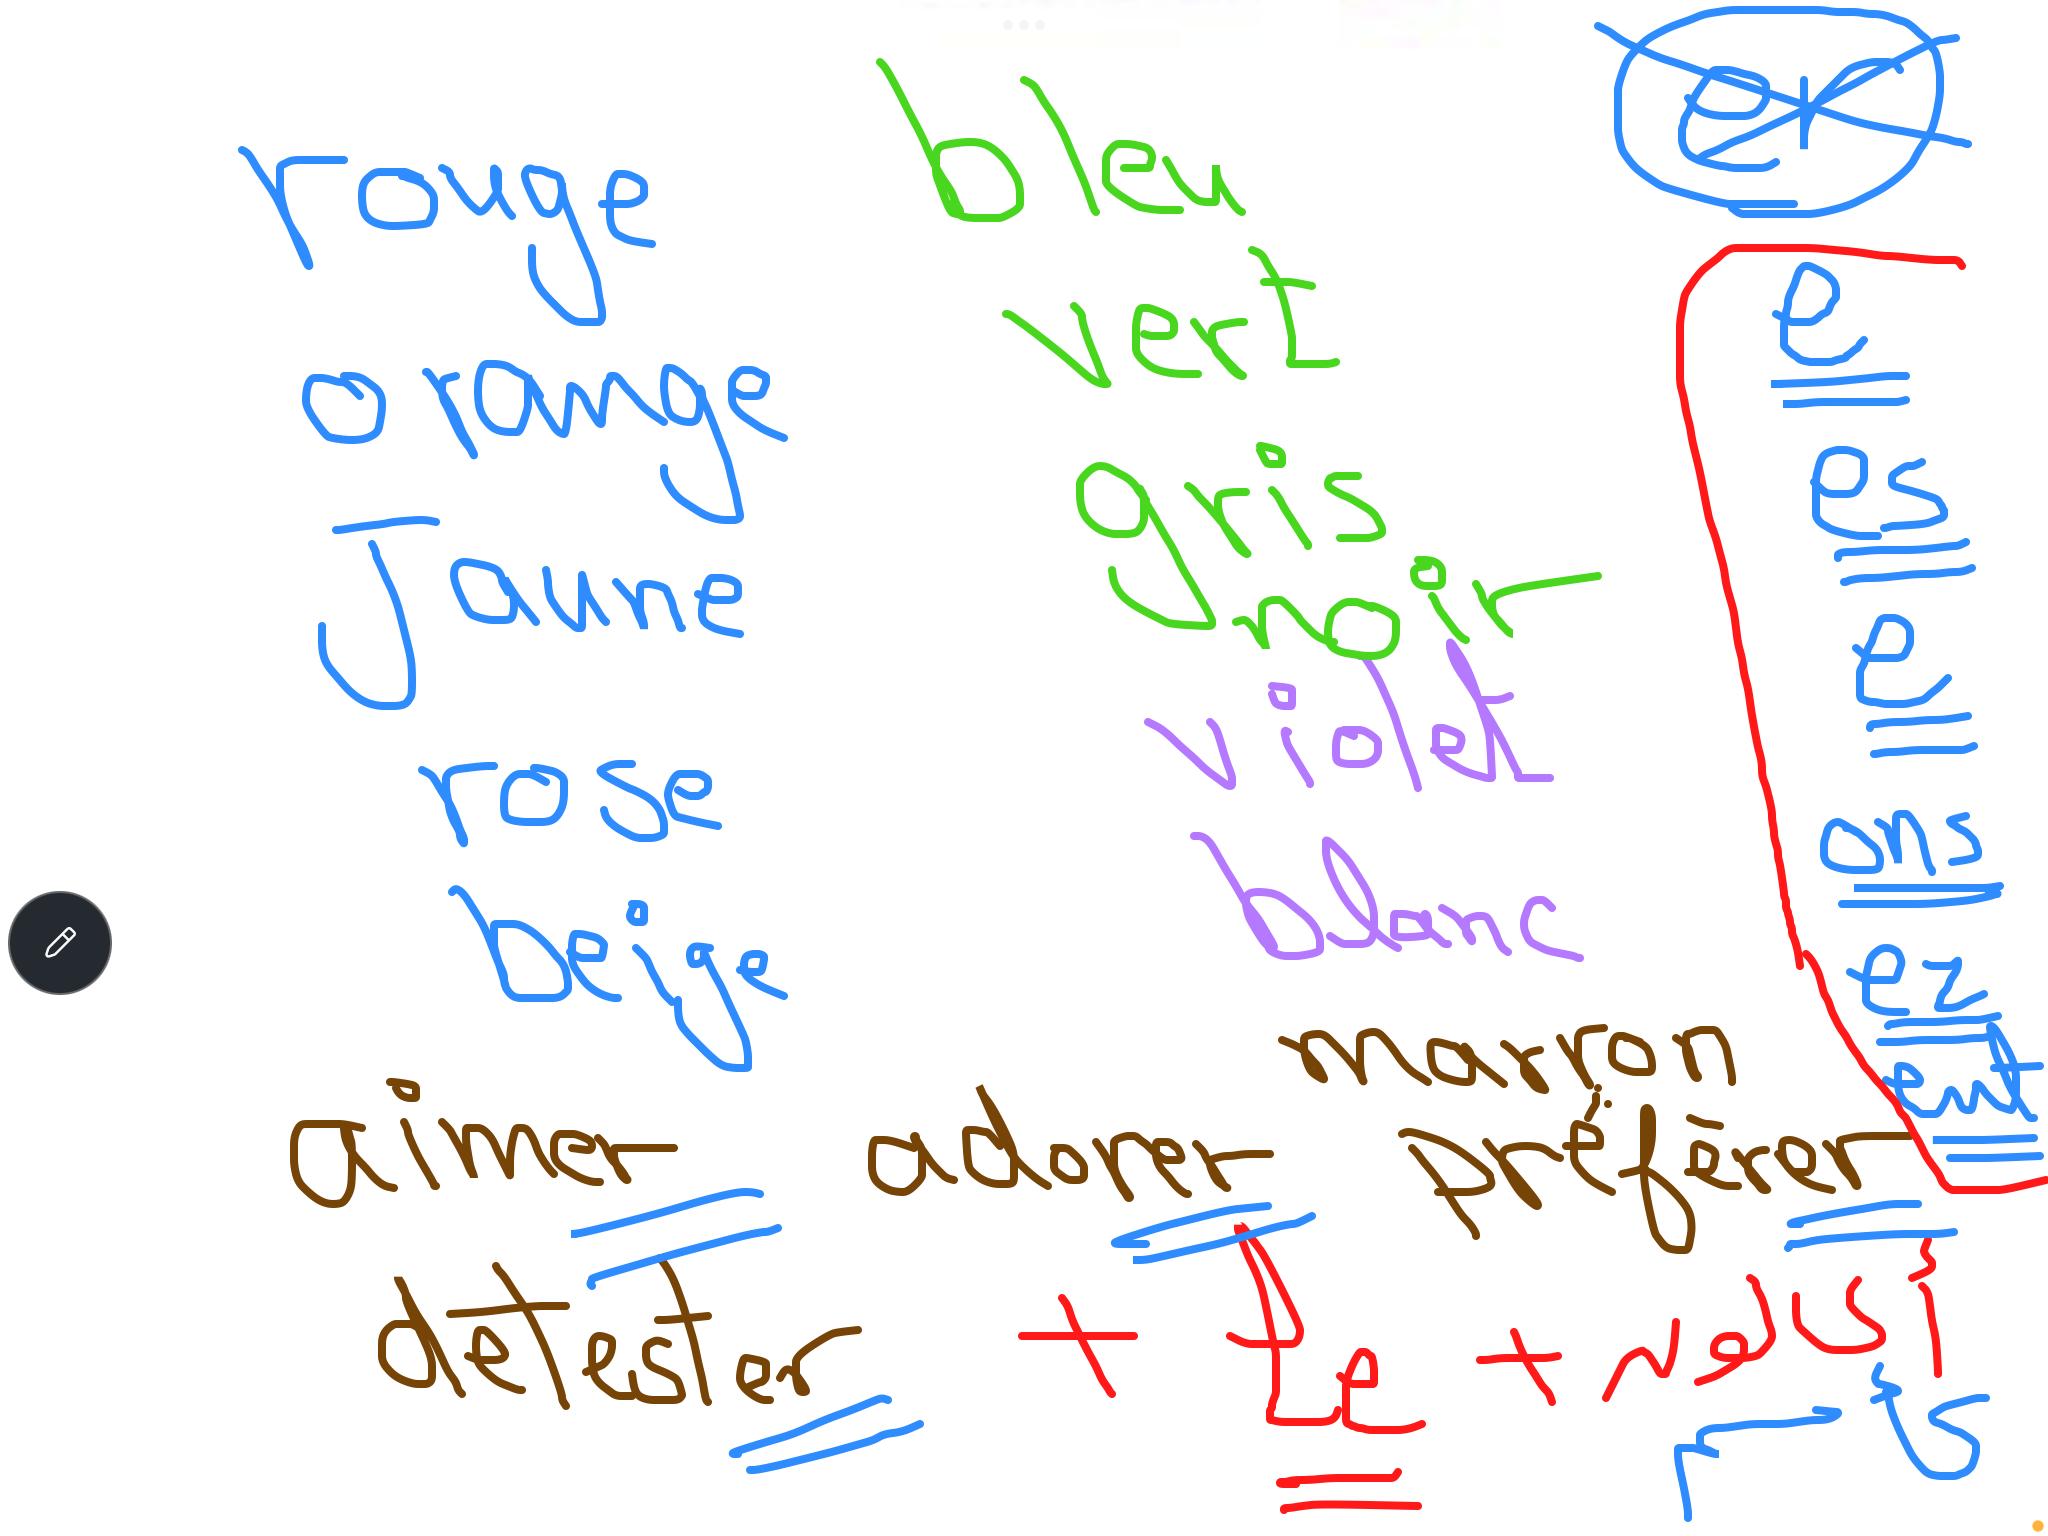 rouge
orange
Jaune
rose
beige
bleu
vert
gris
noir
violet
blanc
marron
er
e
es
e
ons
ez
ent
aimer adorer préférer
détester + Le +